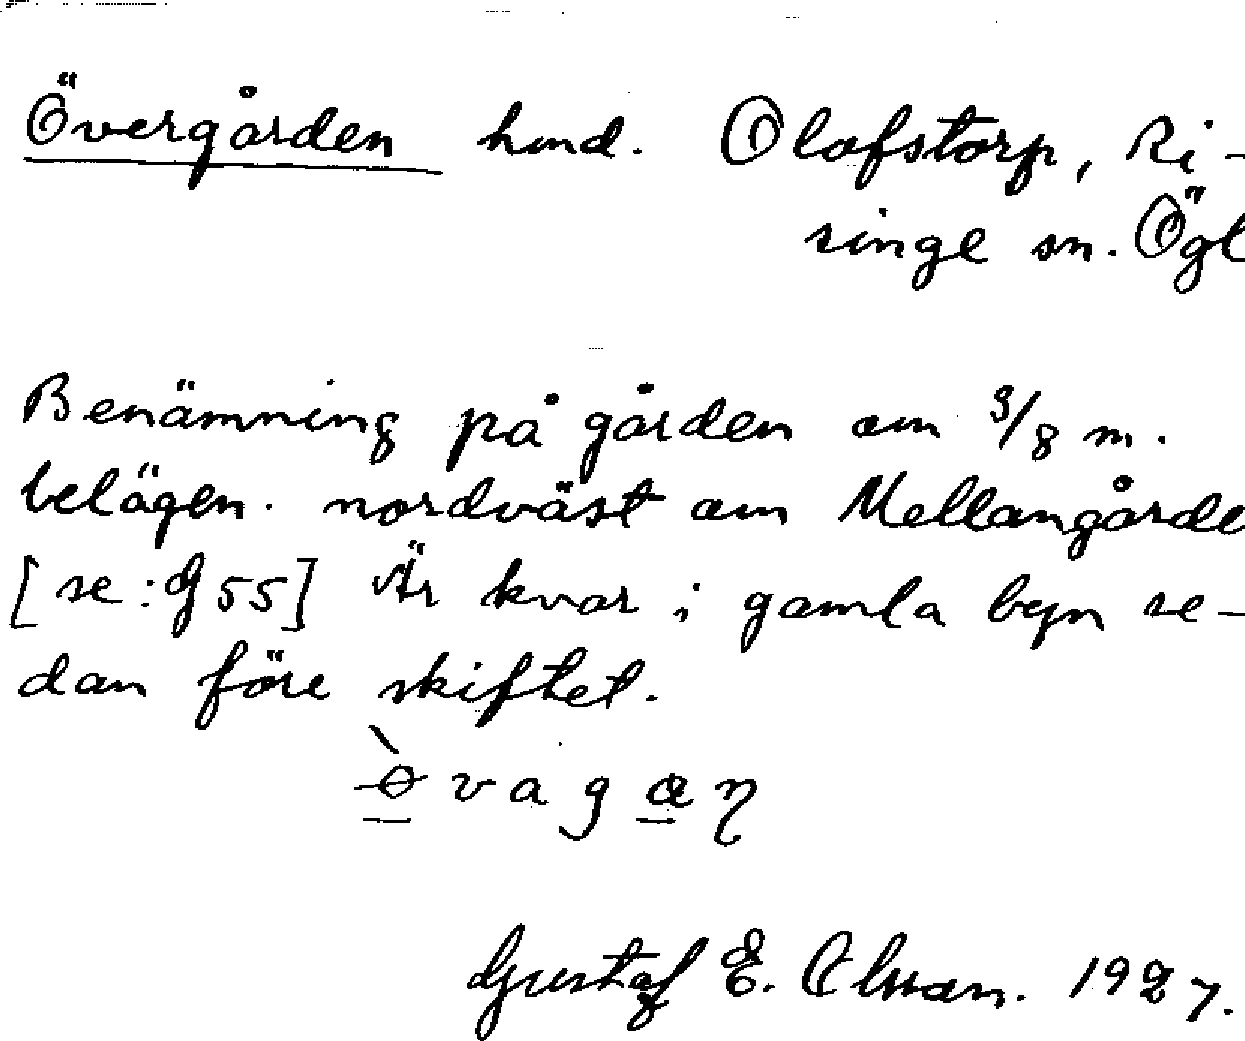 Övergården hmd. Olofstorp, Ri-
singe sn. Ögl
Benämning på gården om 3/8 m.
belägen. nordväst om Mellangårde
[se: G 55] Är kvar i gamla byn se-
dan före skiftet.
Gustaf E. Olsson. 1927.